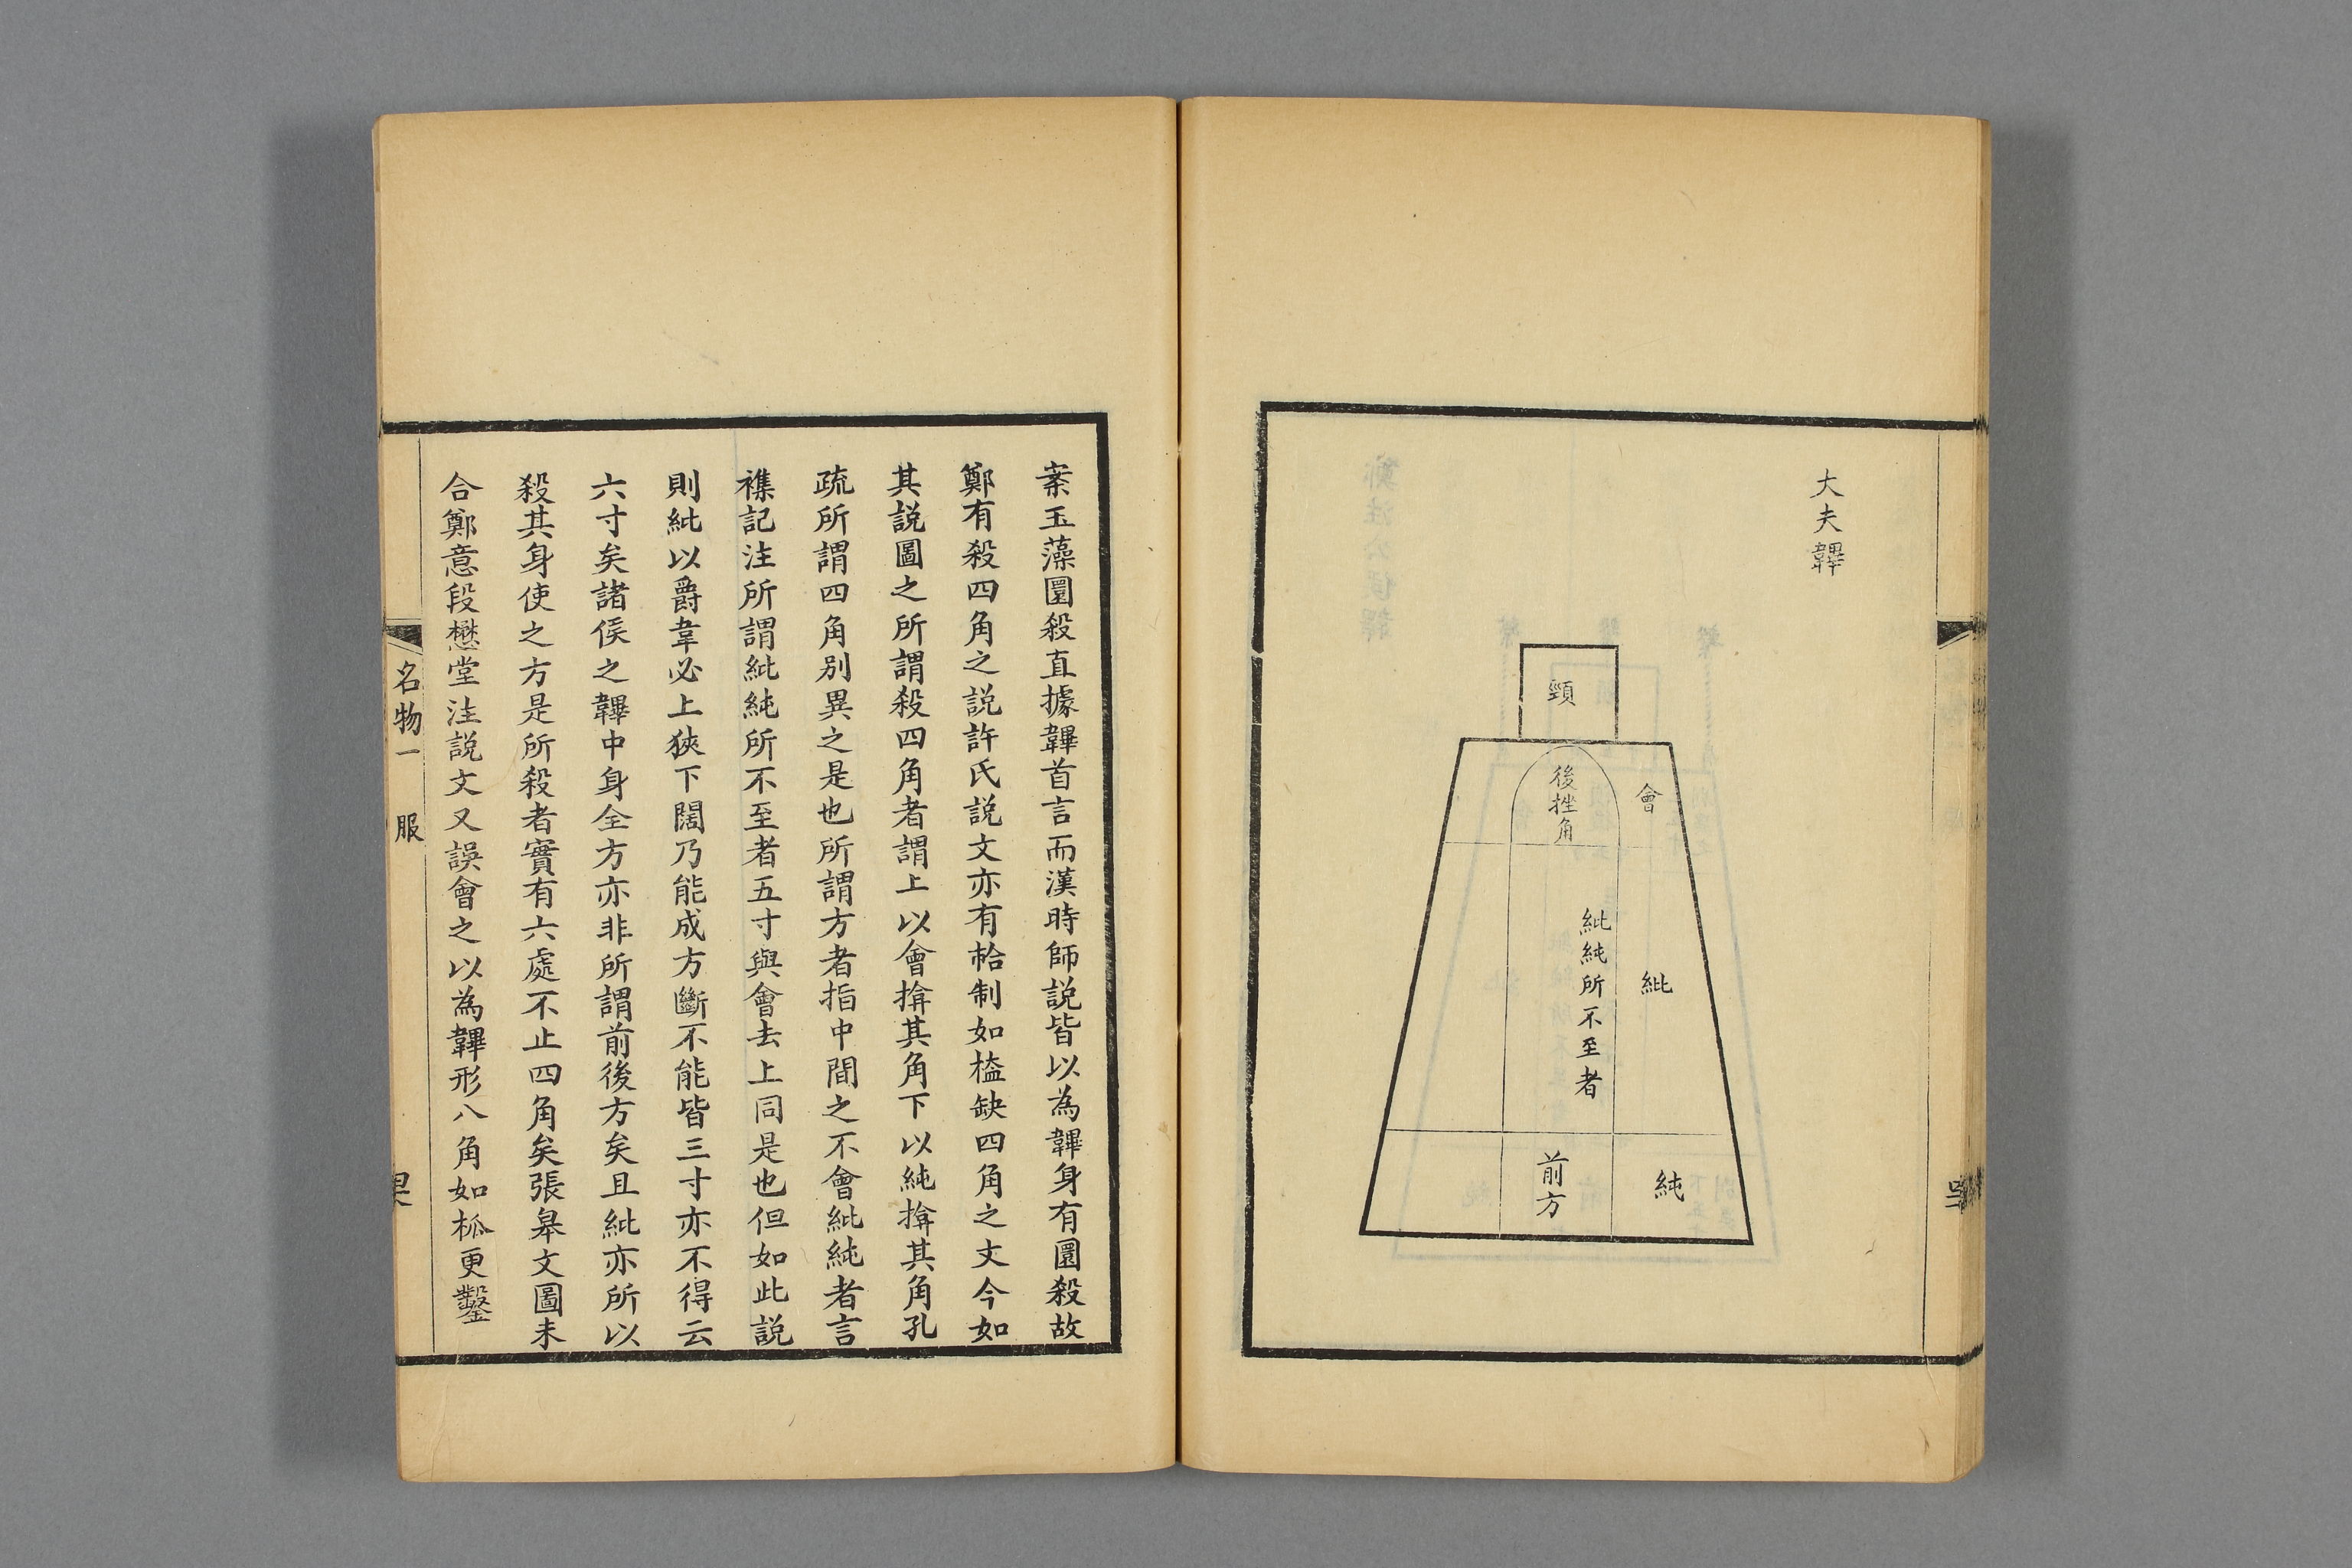 大夫韠
頸
會
後挫角
紕
紕純所不至者
純
前方
案玉藻圜殺直據韠首言而漢時師說皆以為韠身有圜殺故
鄭有殺四角之說許氏說文亦有帢制如榼缺四角之文今如
其說圖之所謂殺四角者謂上以會揜其角下以純揜其角孔
疏所謂四角別異之是也所謂方者指中間之不會紕純者言
襍記注所謂紕純所不至者五寸與會去上同是也但如此說
則紕以爵韋必上狹下闊乃能成方斷不能皆三寸亦不得云
六寸矣諸侯之韠中身全方亦非所謂前後方矣且紕亦所以
殺其身使之方是所殺者實有六處不止四角矣張皋文圖未
合鄭意段懋堂注說文又誤會之以為韠形八角如柧更鑿
名物一 服